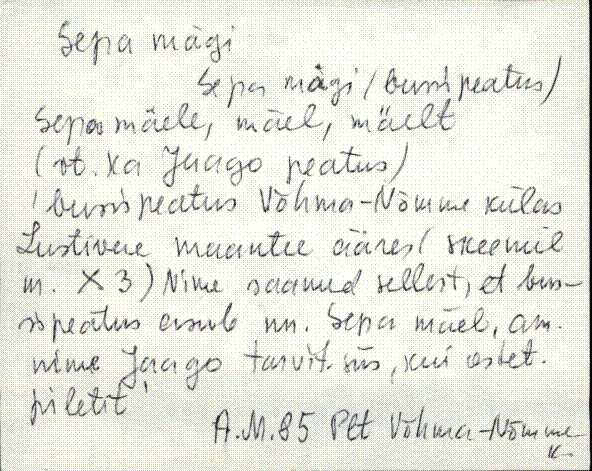 Sepa mägi
Sepa mägi (bussipeatus)
Sepa mäele, mäel, mäelt
(vt. ka Jaago peatus)
'bussipeatus Võhma-Nõmme külas
Lustivere maantee ääres (skeemil
m. X 3) Nime saanud sellest, et bus-
sipeatus asub nn. Sepa mäel, am.
nime Jaago tarvit. siis, kui ostet.
piletit'
A.M.85 Plt Võhma-Nõmme
k.